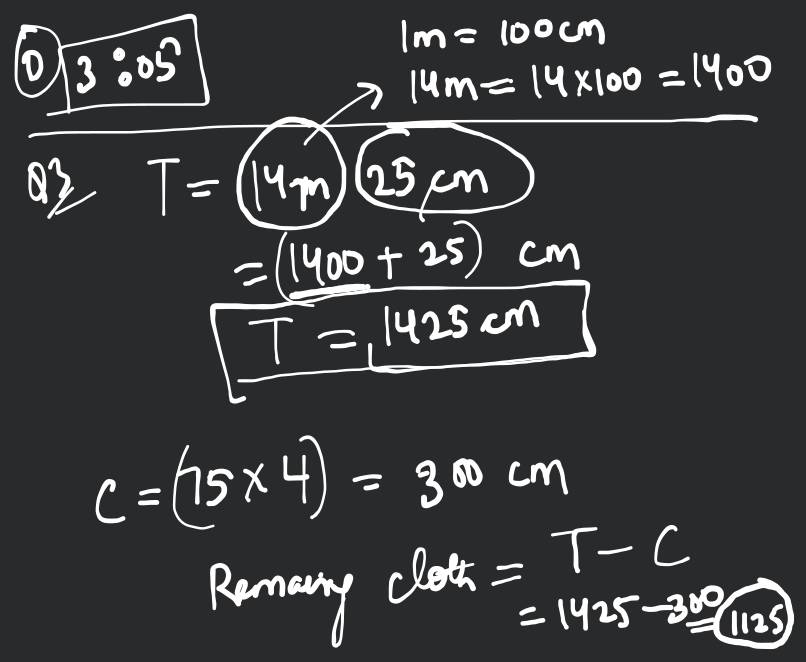 D 3:05
1m = 100cm
14m = 14×100 = 1400
Q3 T = 14m 25 cm
= (1400 + 25) cm
T = 1425 cm
C = (75×4) = 300 cm
Remaing cloth = T - C
= 1425 - 300 = 1125